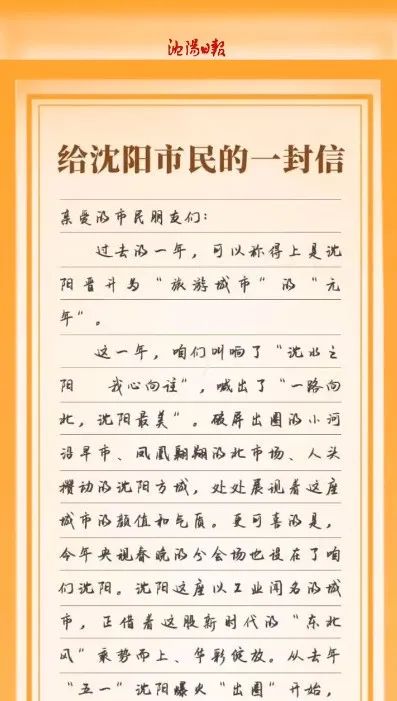 沈阳日报
给沈阳市民的一封信
亲爱的市民朋友们：
过去的一年，可以称得上是沈
阳晋升为“旅游城市”的“元
年”。
这一年，咱们叫响了“沈水之
阳 我心向往”，喊出了“一路向
北，沈阳最美”。破屏出圈的小河
沿早市、凤凰翱翔的北市场、人头
攒动的沈阳方城，处处展现着这座
城市的颜值和气质。更可喜的是，
今年央视春晚的分会场也设在了咱
们沈阳。沈阳这座以工业闻名的城
市，正借着这股新时代的“东北
风”乘势而上、华彩绽放。从去年
“五一”沈阳爆火“出圈”开始，